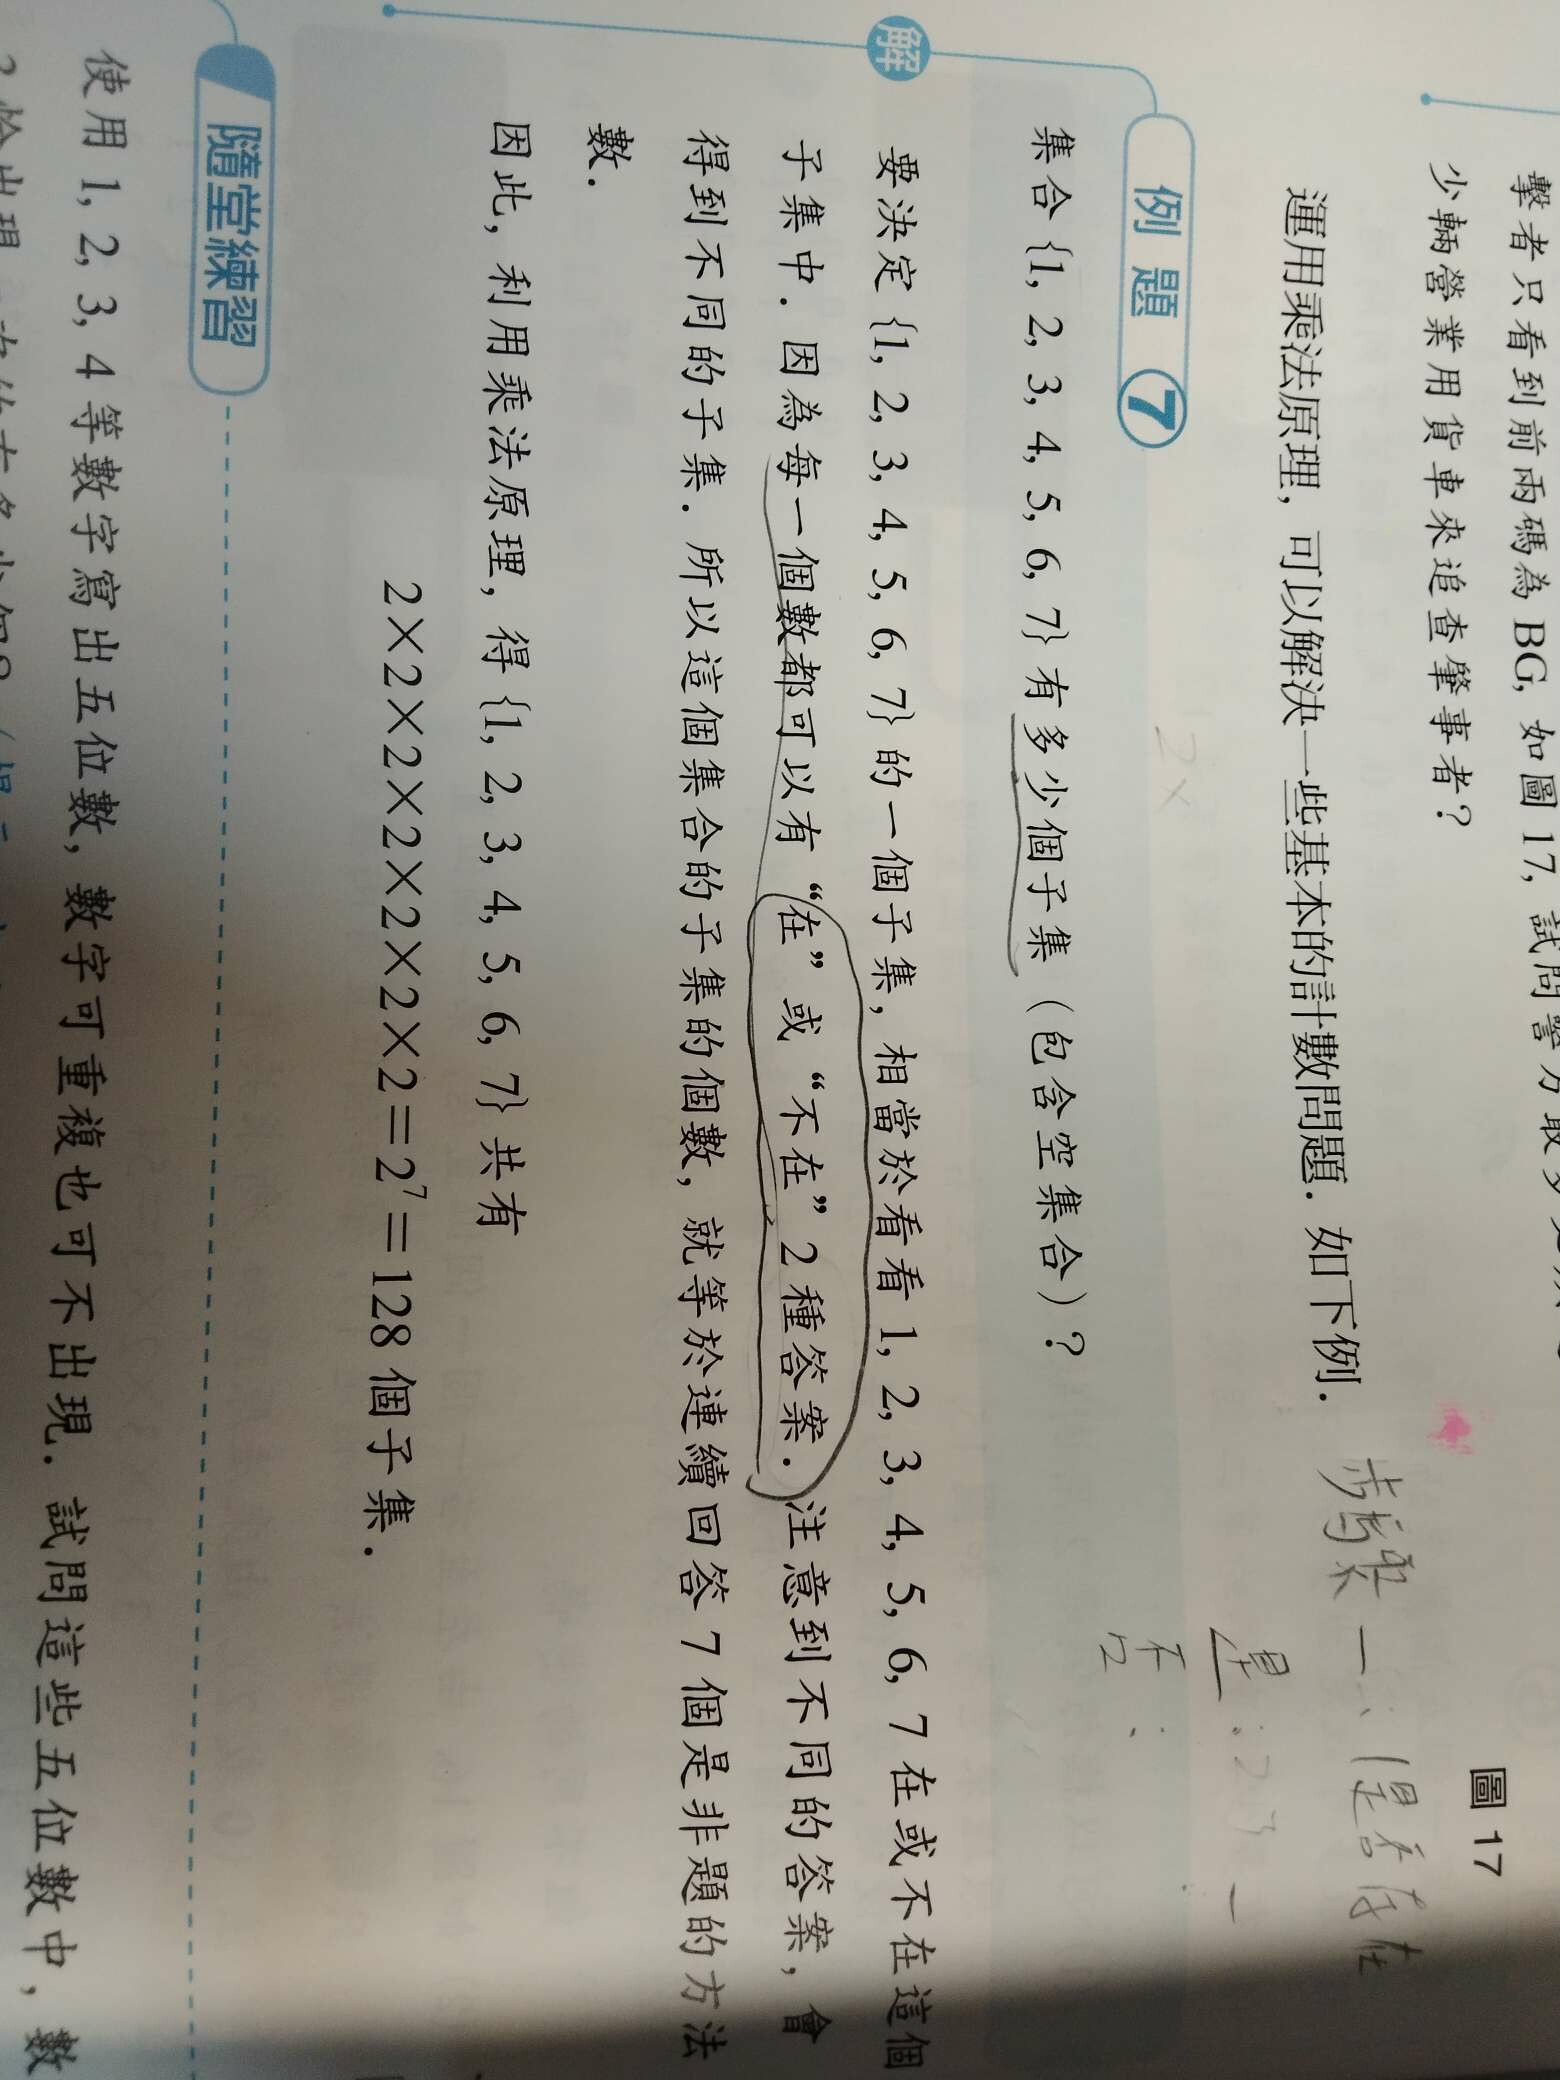 擊者只看到前兩碼為 BG, 如圖 17, 試問警方最多
少輛營業用貨車來追查肇事者?
圖 17
運用乘法原理, 可以解決一些基本的計數問題. 如下例.
步驟一: (是否存在
是: 2
不
2×
例題 7
集合 {1, 2, 3, 4, 5, 6, 7} 有多少個子集 (包含空集合)?
解
要決定 {1, 2, 3, 4, 5, 6, 7} 的一個子集, 相當於看看 1, 2, 3, 4, 5, 6, 7 在或不在這個
子集中. 因為每一個數都可以有 “在” 或 “不在” 2 種答案. 注意到不同的答案, 會
得到不同的子集. 所以這個集合的子集的個數, 就等於連續回答 7 個是非題的方法
數.
因此, 利用乘法原理, 得 {1, 2, 3, 4, 5, 6, 7} 共有
2×2×2×2×2×2×2=2⁷=128 個子集.
隨堂練習
使用 1, 2, 3, 4 等數字寫出五位數, 數字可重複也可不出現. 試問這些五位數中, 數